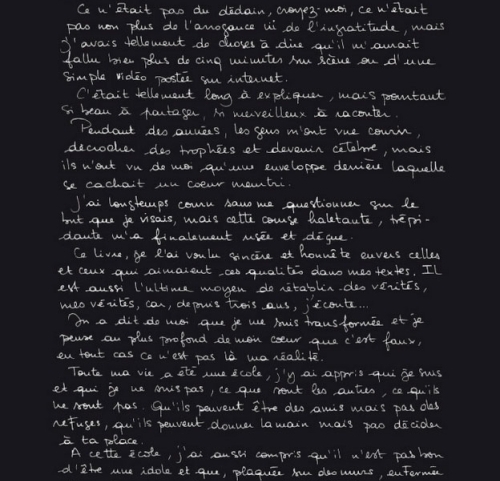 Ce n'était pas du dédain, croyez-moi, ce n'était
pas non plus de l'arrogance ni de l'ingratitude, mais
j'avais tellement de choses à dire qu'il m'aurait
fallu bien plus de cinq minutes sur scène ou d'une
simple vidéo postée sur internet.
C'était tellement long à expliquer, mais pourtant
si beau à partager, si merveilleux à raconter.
Pendant des années, les gens m'ont vue courir,
décrocher des trophées et devenir célèbre, mais
ils n'ont vu de moi qu'une enveloppe derrière laquelle
se cachait un coeur meurtri.
J'ai longtemps couru sans me questionner sur le
but que je visais, mais cette course haletante, trépi-
dante m'a finalement usée et déçue.
Ce livre, je l'ai voulu sincère et honnête envers celles
et ceux qui aimaient ces qualités dans mes textes. Il
est aussi l'ultime moyen de rétablir des vérités,
mes vérités, car, depuis trois ans, j'écoute...
On a dit de moi que je me suis transformée et je
pense au plus profond de mon coeur que c'est faux,
en tout cas ce n'est pas là ma réalité.
Toute ma vie a été une école, j'y ai appris qui je suis
et qui je ne suis pas, ce que sont les autres, ce qu'ils
ne sont pas. Qu'ils peuvent être des amis mais pas des
refuges, qu'ils peuvent donner la main mais pas décider
à ta place.
A cette école, j'ai aussi compris qu'il n'est pas bon
d'être une idole et que, plaquée sur des murs, enfermée